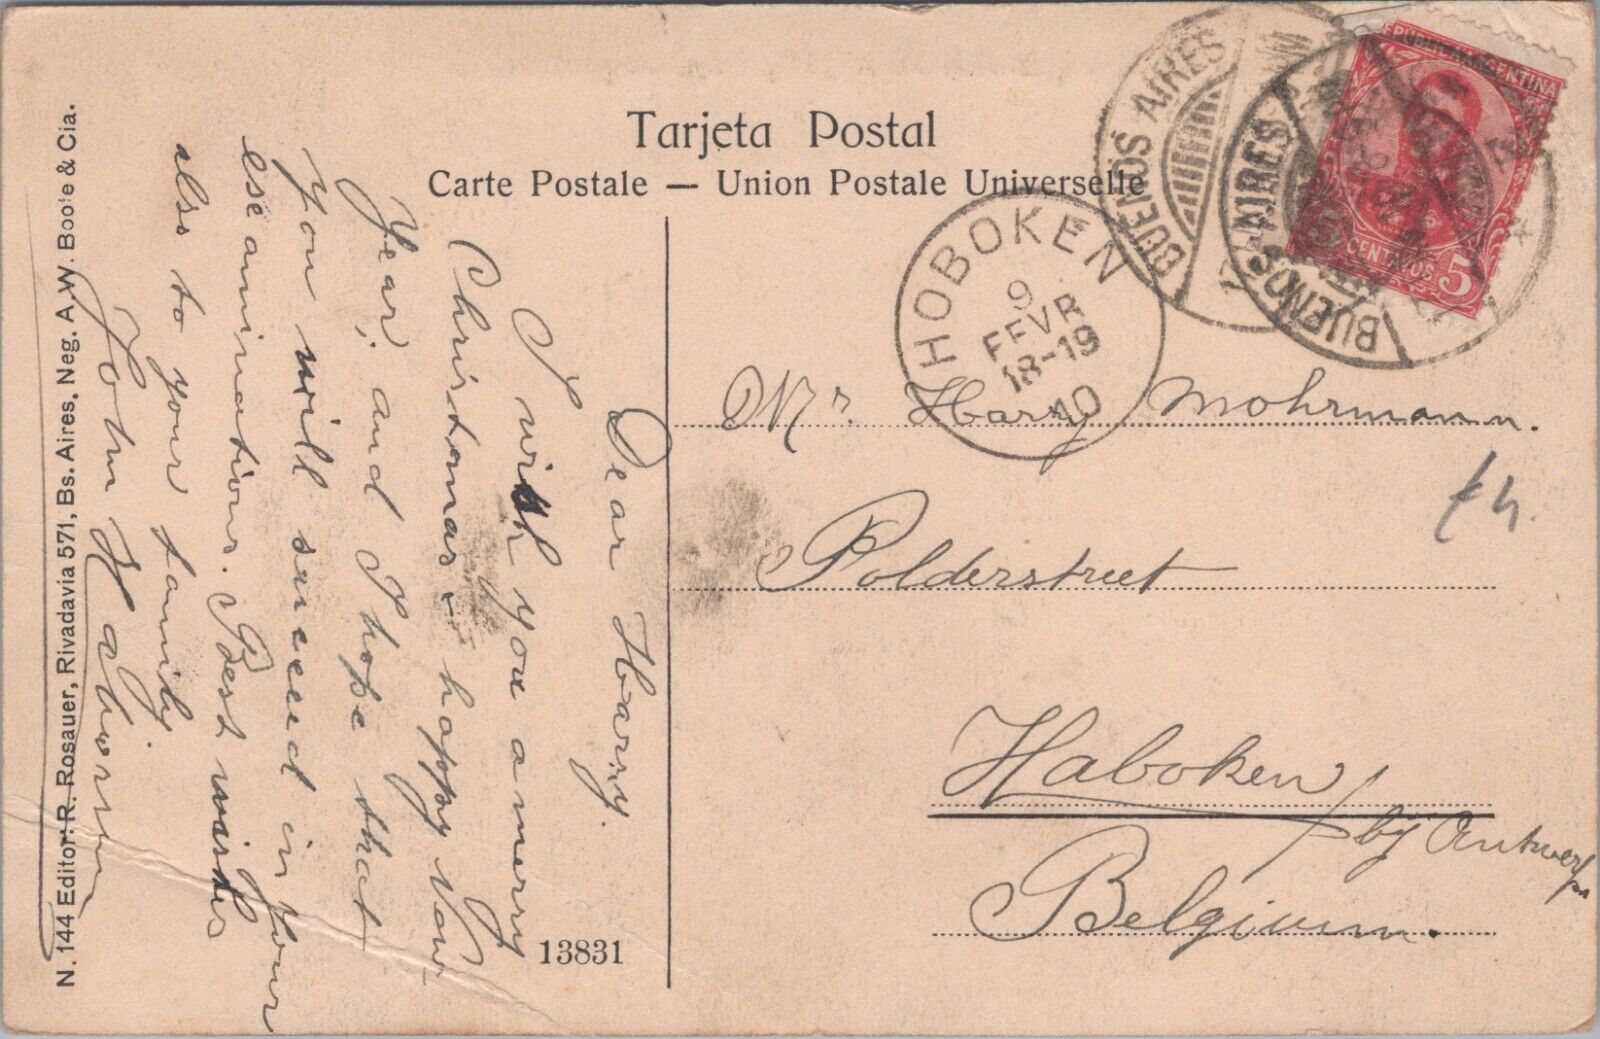 Tarjeta Postal
Carte Postale — Union Postale Universelle
BUENOS AIRES
BUENOS AIRES
REPUBLICA ARGENTINA
CENTAVOS 5
HOBOKEN
9
FEVR
18-19
10
Mr. Harry Mohrmann.
Polderstreet
Haboken
by Antwerp
Belgium.
Dear Harry.
I wish you a merry
Christmas - happy New
Year, and I hope that
you will succeed in your
eseaminations. Best wishes
also to your family
John
13831
N. 144 Editor: R. Rosauer, Rivadavia 571, Bs. Aires, Neg. A.W. Boote & Cia.